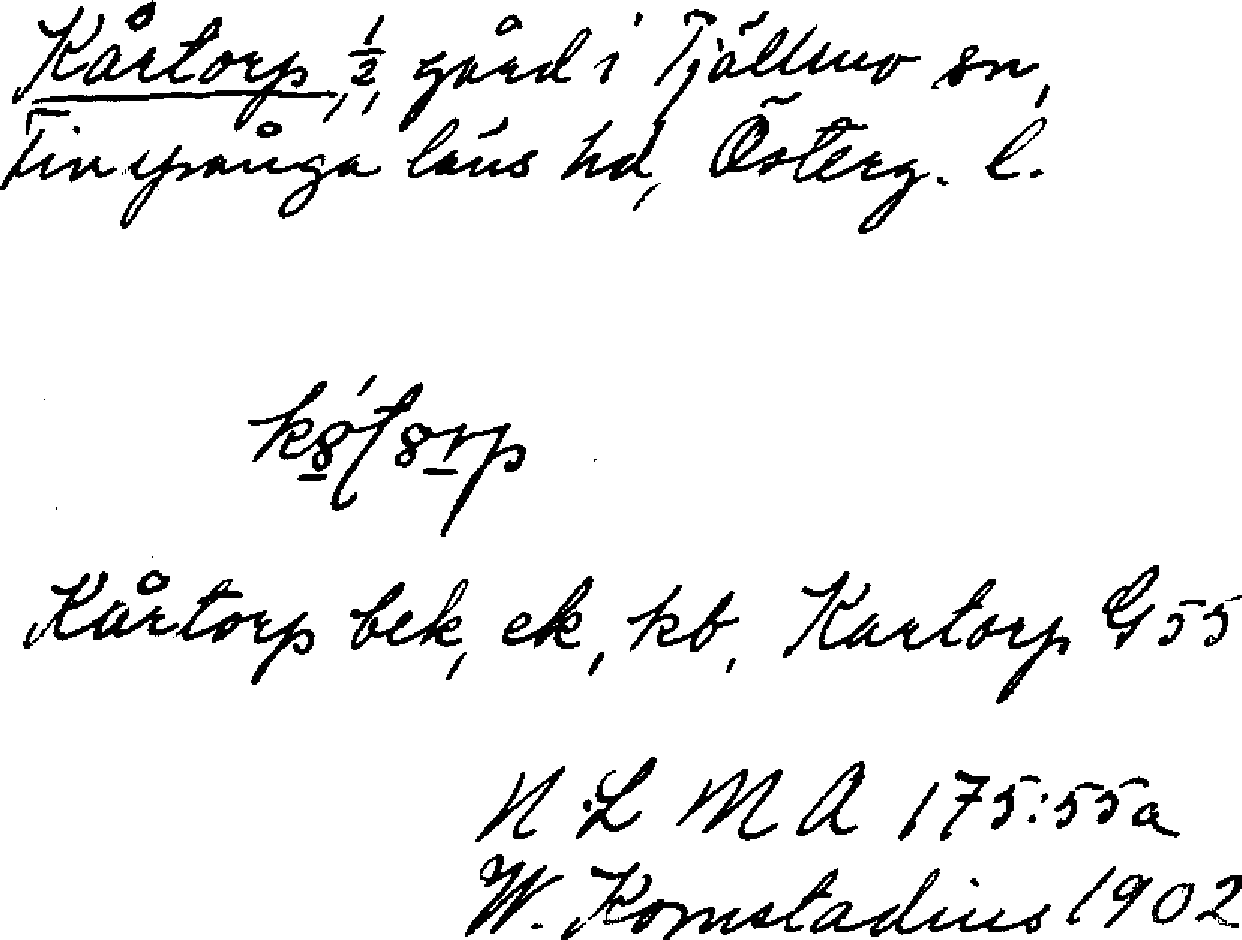 Kårtorp, 1/2, gård i Tjällmo sn,
Finspånga läns hd, Österg. l.
Kårtorp bek, ek, kb, Kartorp G 55
N L M A 175:55a
W. Komstadius 1902